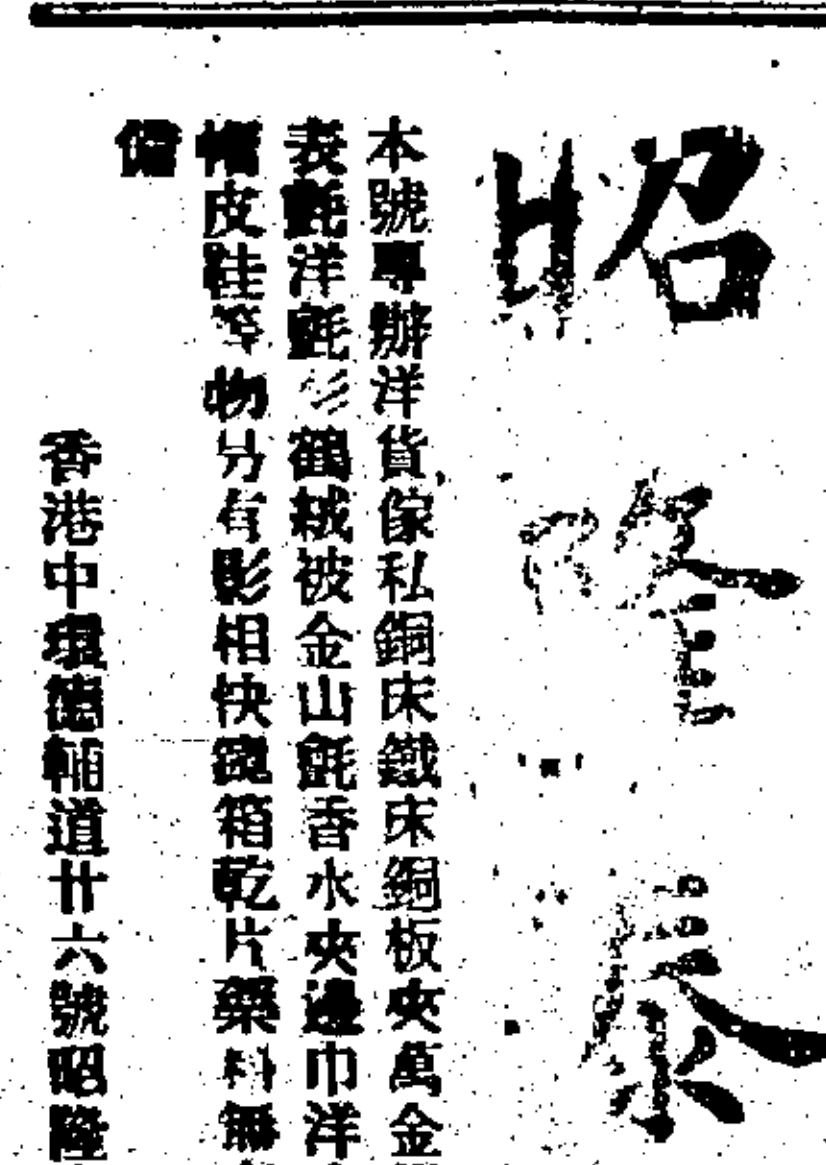 昭隆泰
本號專辦洋貨傢私銅床鐵床銅板夾萬金
表氈洋氈衫鶴絨被金山氈香水夾邊巾洋
帽皮鞋等物另有影相快鏡箱乾片藥料無
備
香港中環德輔道廿六號昭隆